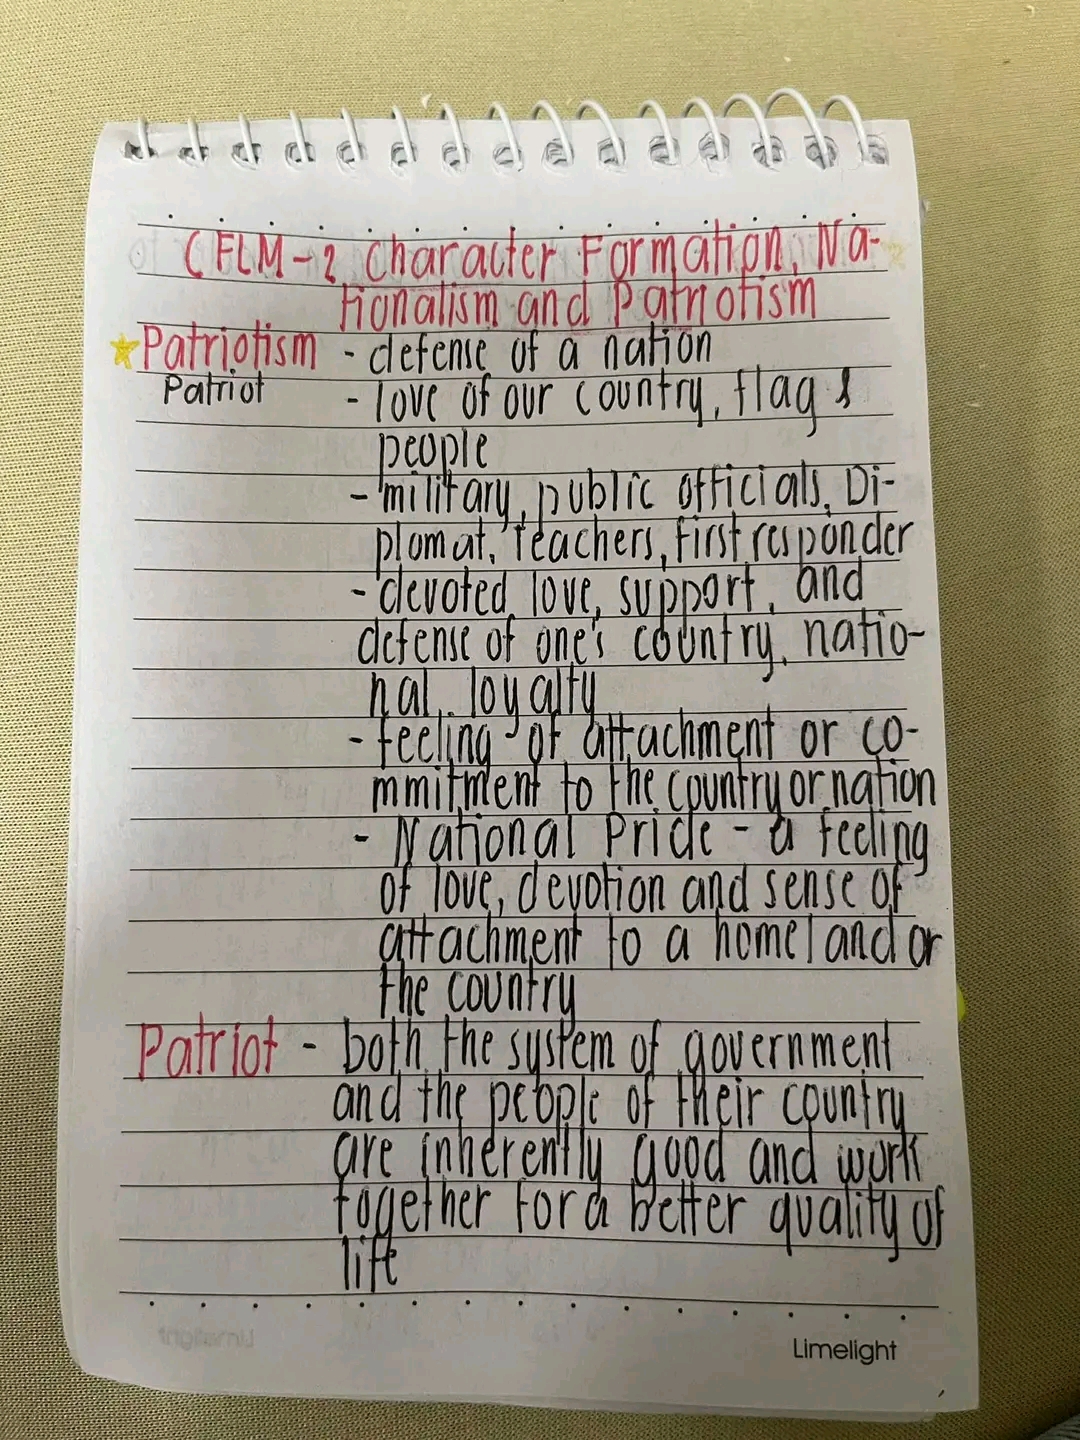 CFLM-2 Character Formation, Na-
tionalism and Patriotism
Patriotism - defense of a nation
Patriot - love of our country, flag &
people
- military, public officials, Di-
plomat, teachers, first responder
- devoted love, support, and
defense of one's country, natio-
nal loyalty
- feeling of attachment or co-
mmitment to the country or nation
- National Pride - a feeling
of love, devotion and sense of
attachment to a homeland or
the country
Patriot - both the system of government
and the people of their country
are inherently good and work
together for a better quality of
life
Limelight